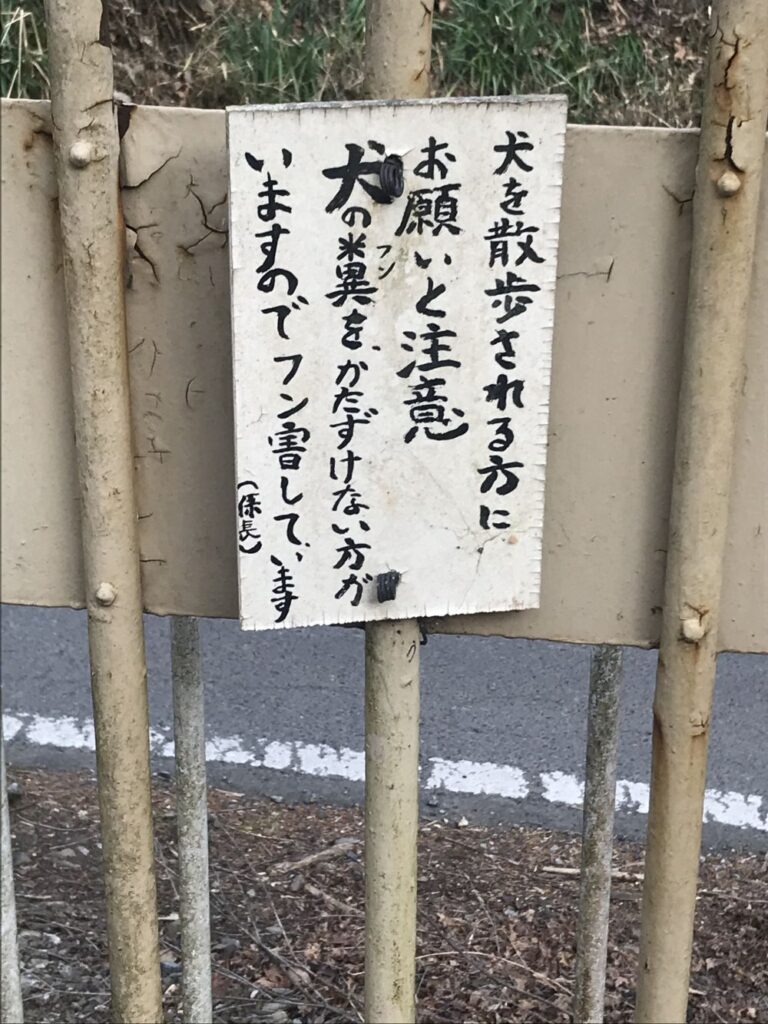 犬を散歩される方に
お願いと注意
フン
犬の糞をかたずけない方が
いますのでフン害しています
(係長)